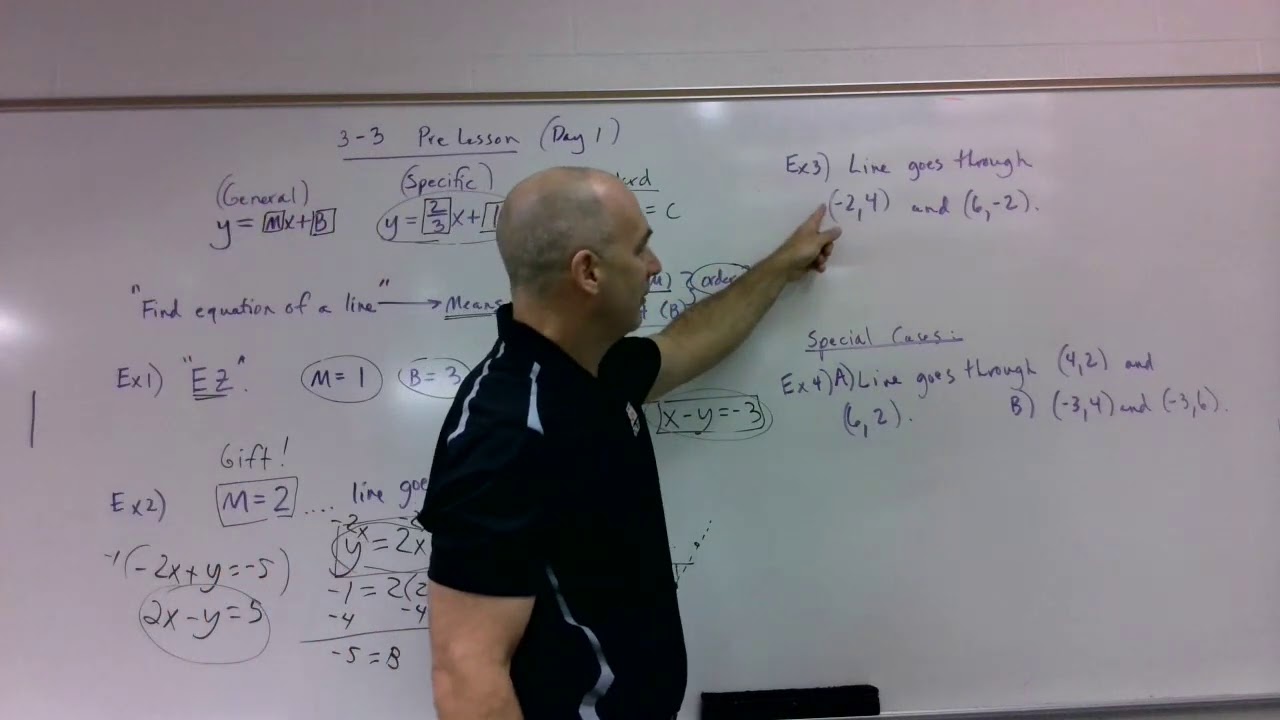 3-3 Pre Lesson (Day 1)
(General)
y = Mx + B
(Specific)
y = 2/3 x + 1
= C
"Find equation of a line" → Means
(B)
order
Ex1) "EZ". M = 1 B = 3
x - y = -3
Gift!
Ex2) M = 2 .... line goe
-2x
y = 2x
-1 = 2(2
-4 -4
-5 = B
-1(-2x + y = -5)
2x - y = 5
Ex3) Line goes through
(-2,4) and (6,-2).
Special Cases:
Ex4) A) Line goes through (4,2) and
(6,2).
B) (-3,4) and (-3,6).